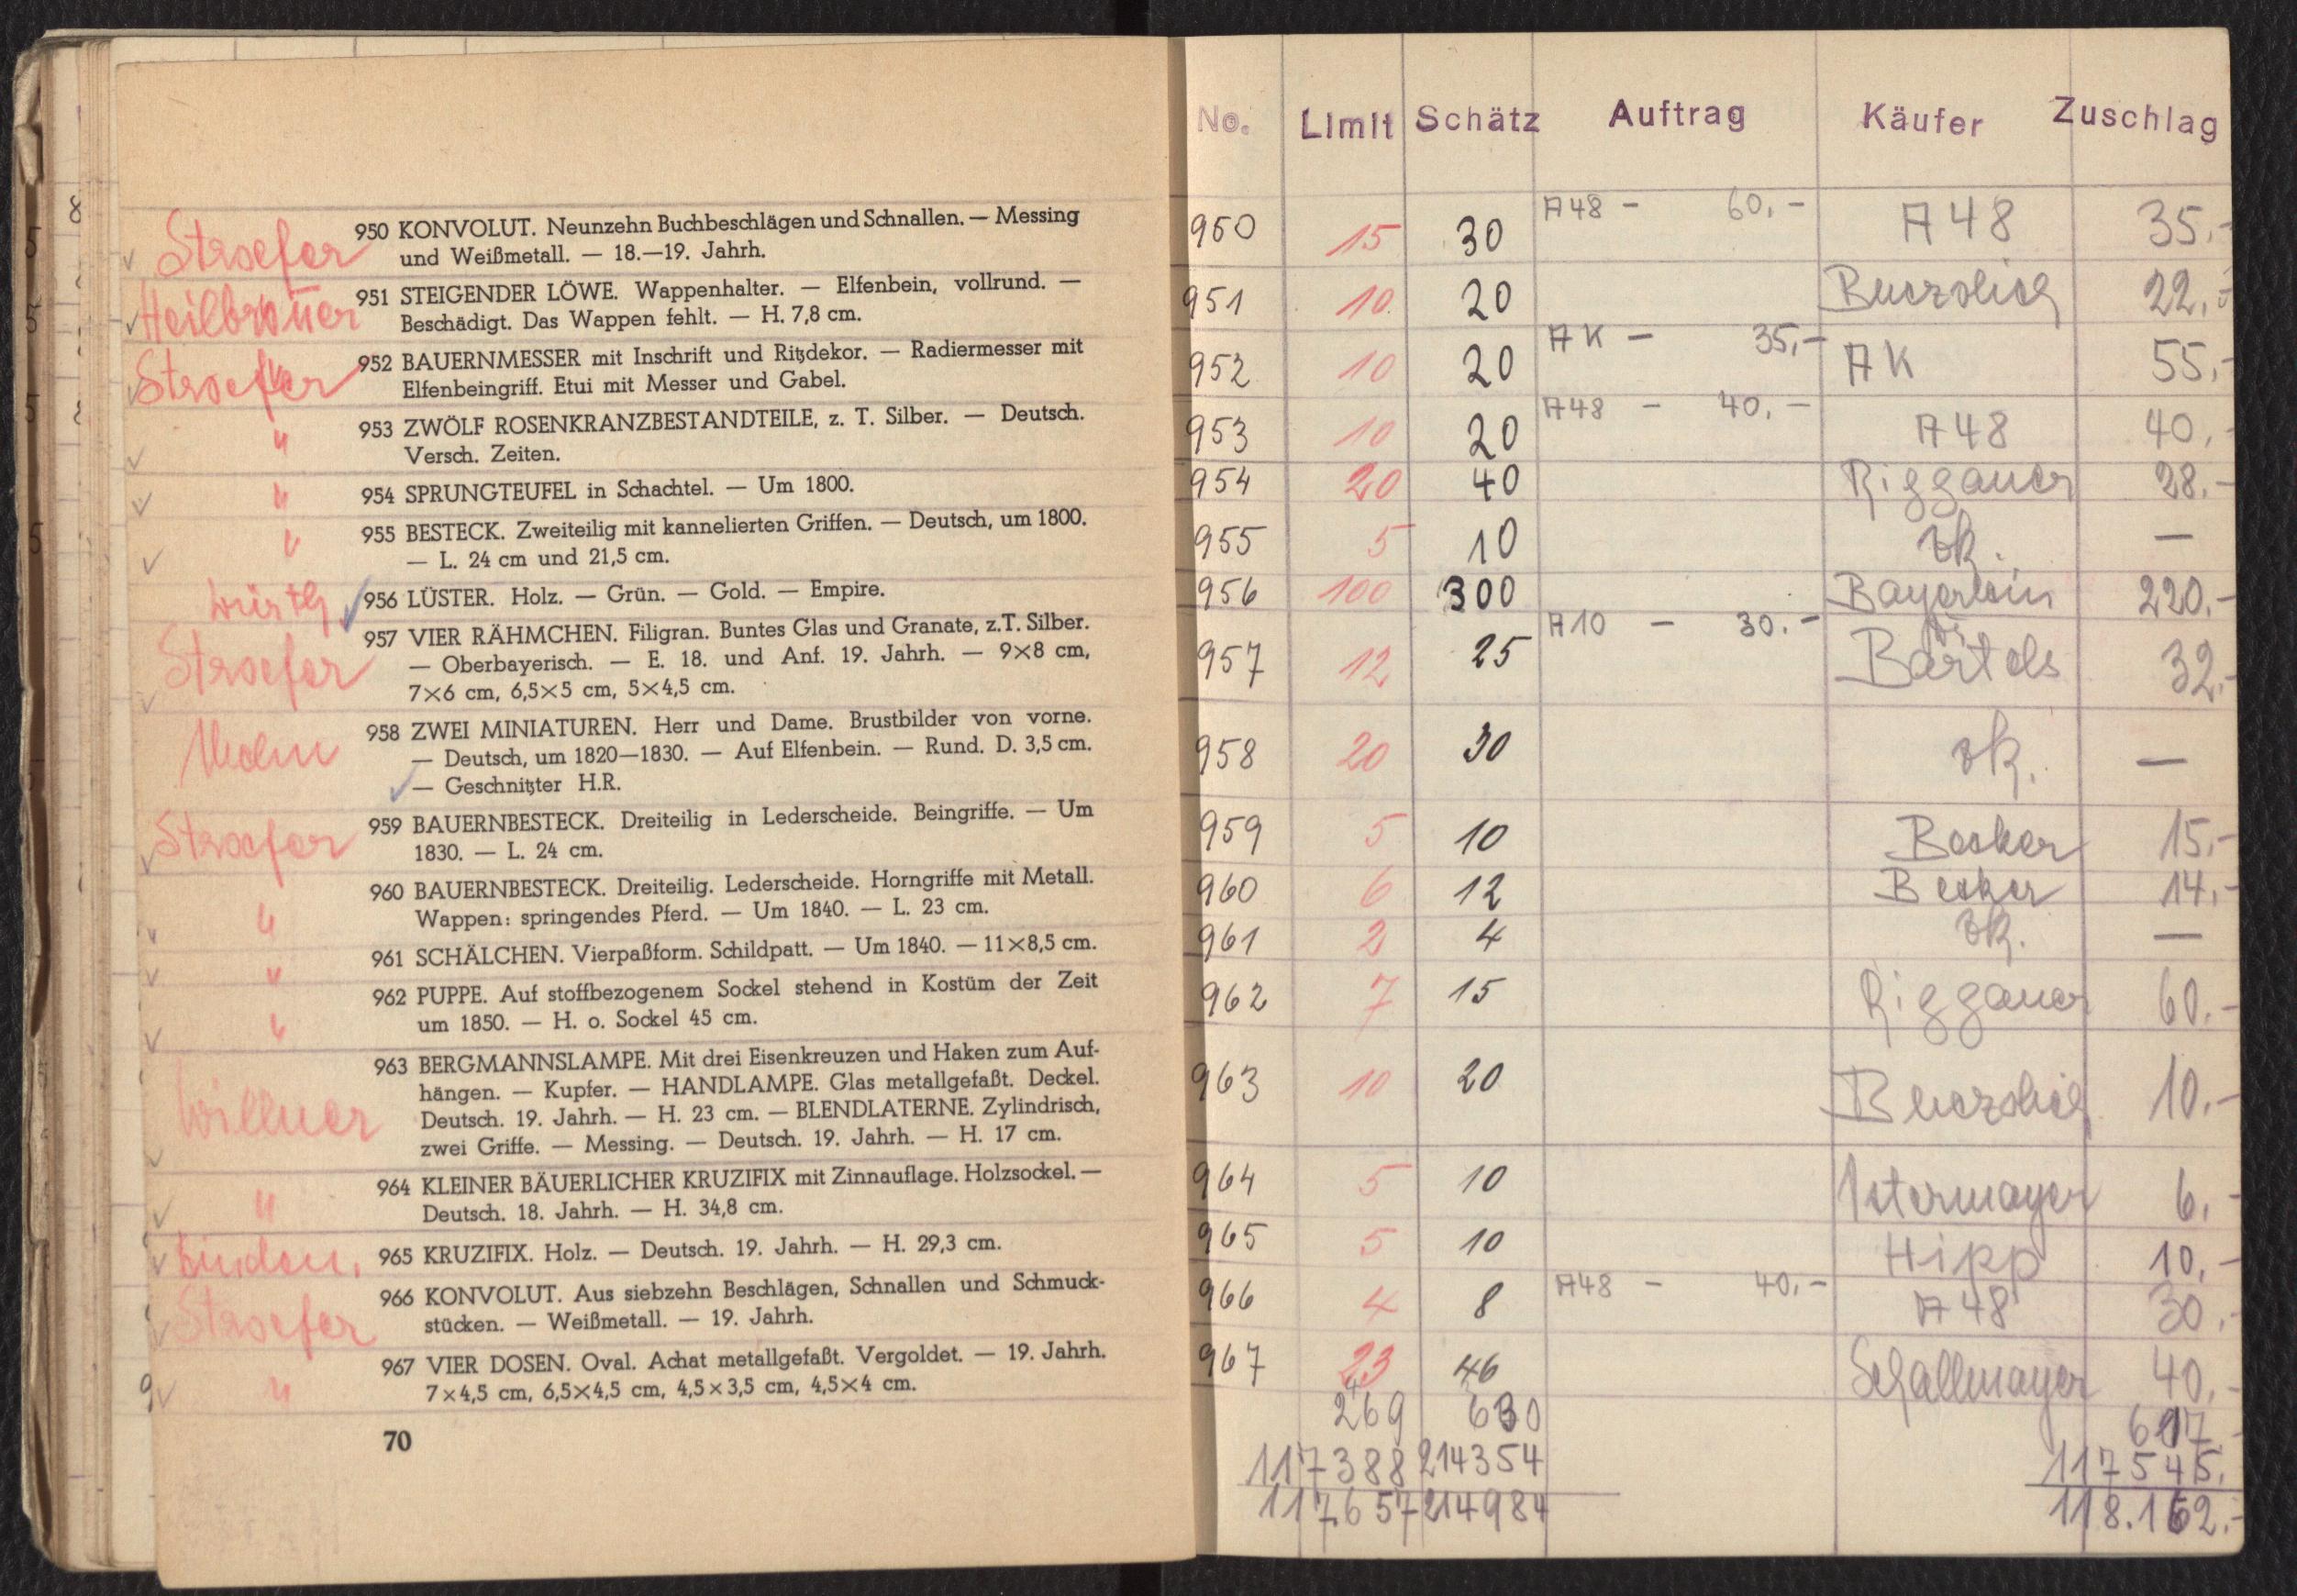 Stroefer
950 KONVOLUT. Neunzehn Buchbeschlägen und Schnallen. — Messing
und Weißmetall. — 18.—19. Jahrh.
Heilbronner
951 STEIGENDER LÖWE. Wappenhalter. — Elfenbein, vollrund. —
Beschädigt. Das Wappen fehlt. — H. 7,8 cm.
Stroefer
952 BAUERNMESSER mit Inschrift und Ritzdekor. — Radiermesser mit
Elfenbeingriff. Etui mit Messer und Gabel.
"
953 ZWÖLF ROSENKRANZBESTANDTEILE, z. T. Silber. — Deutsch.
Versch. Zeiten.
" 954 SPRUNGTEUFEL in Schachtel. — Um 1800.
" 955 BESTECK. Zweiteilig mit kannelierten Griffen. — Deutsch, um 1800.
— L. 24 cm und 21,5 cm.
Würth 956 LÜSTER. Holz. — Grün. — Gold. — Empire.
Stroefer
957 VIER RÄHMCHEN. Filigran. Buntes Glas und Granate, z.T. Silber.
— Oberbayerisch. — E. 18. und Anf. 19. Jahrh. — 9×8 cm,
7×6 cm, 6,5×5 cm, 5×4,5 cm.
958 ZWEI MINIATUREN. Herr und Dame. Brustbilder von vorne.
— Deutsch, um 1820—1830. — Auf Elfenbein. — Rund. D. 3,5 cm.
— Geschnitzter H.R.
Stroefer
959 BAUERNBESTECK. Dreiteilig in Lederscheide. Beingriffe. — Um
1830. — L. 24 cm.
"
960 BAUERNBESTECK. Dreiteilig. Lederscheide. Horngriffe mit Metall.
Wappen: springendes Pferd. — Um 1840. — L. 23 cm.
" 961 SCHÄLCHEN. Vierpaßform. Schildpatt. — Um 1840. — 11×8,5 cm.
"
962 PUPPE. Auf stoffbezogenem Sockel stehend in Kostüm der Zeit
um 1850. — H. o. Sockel 45 cm.
Willner
963 BERGMANNSLAMPE. Mit drei Eisenkreuzen und Haken zum Auf-
hängen. — Kupfer. — HANDLAMPE. Glas metallgefaßt. Deckel.
Deutsch. 19. Jahrh. — H. 23 cm. — BLENDLATERNE. Zylindrisch,
zwei Griffe. — Messing. — Deutsch. 19. Jahrh. — H. 17 cm.
"
964 KLEINER BÄUERLICHER KRUZIFIX mit Zinnauflage. Holzsockel. —
Deutsch. 18. Jahrh. — H. 34,8 cm.
Linden. 965 KRUZIFIX. Holz. — Deutsch. 19. Jahrh. — H. 29,3 cm.
Stroefer
966 KONVOLUT. Aus siebzehn Beschlägen, Schnallen und Schmuck-
stücken. — Weißmetall. — 19. Jahrh.
"
967 VIER DOSEN. Oval. Achat metallgefaßt. Vergoldet. — 19. Jahrh.
7×4,5 cm, 6,5×4,5 cm, 4,5×3,5 cm, 4,5×4 cm.
70
No. Limit Schätz Auftrag Käufer Zuschlag
950 15 30 A48 — 60.— A48 35.-
951 10 20 22.-
952 10 20 AK — 35,— AK 55,-
953 10 20 A48 — 40.— A48 40,-
954 20 40 Riggauer 28.-
955 5 10 zk. —
956 100 300 Bayerlein 220.-
957 12 25 A10 — 30.— Bartels 32.-
958 20 30 zk. —
959 5 10 Becker 15.-
960 6 12 Becker 14.-
961 2 4 zk. —
962 7 15 Riggauer 60.-
963 10 20 10.-
964 5 10 Ostermayer 6.-
965 5 10 Hipp 10,-
966 4 8 A48 — 40.— A48 30.-
967 23 46 Schallmayer 40.-
269 630 617.-
117388 214354 117545.
117657 214984 118.162.-